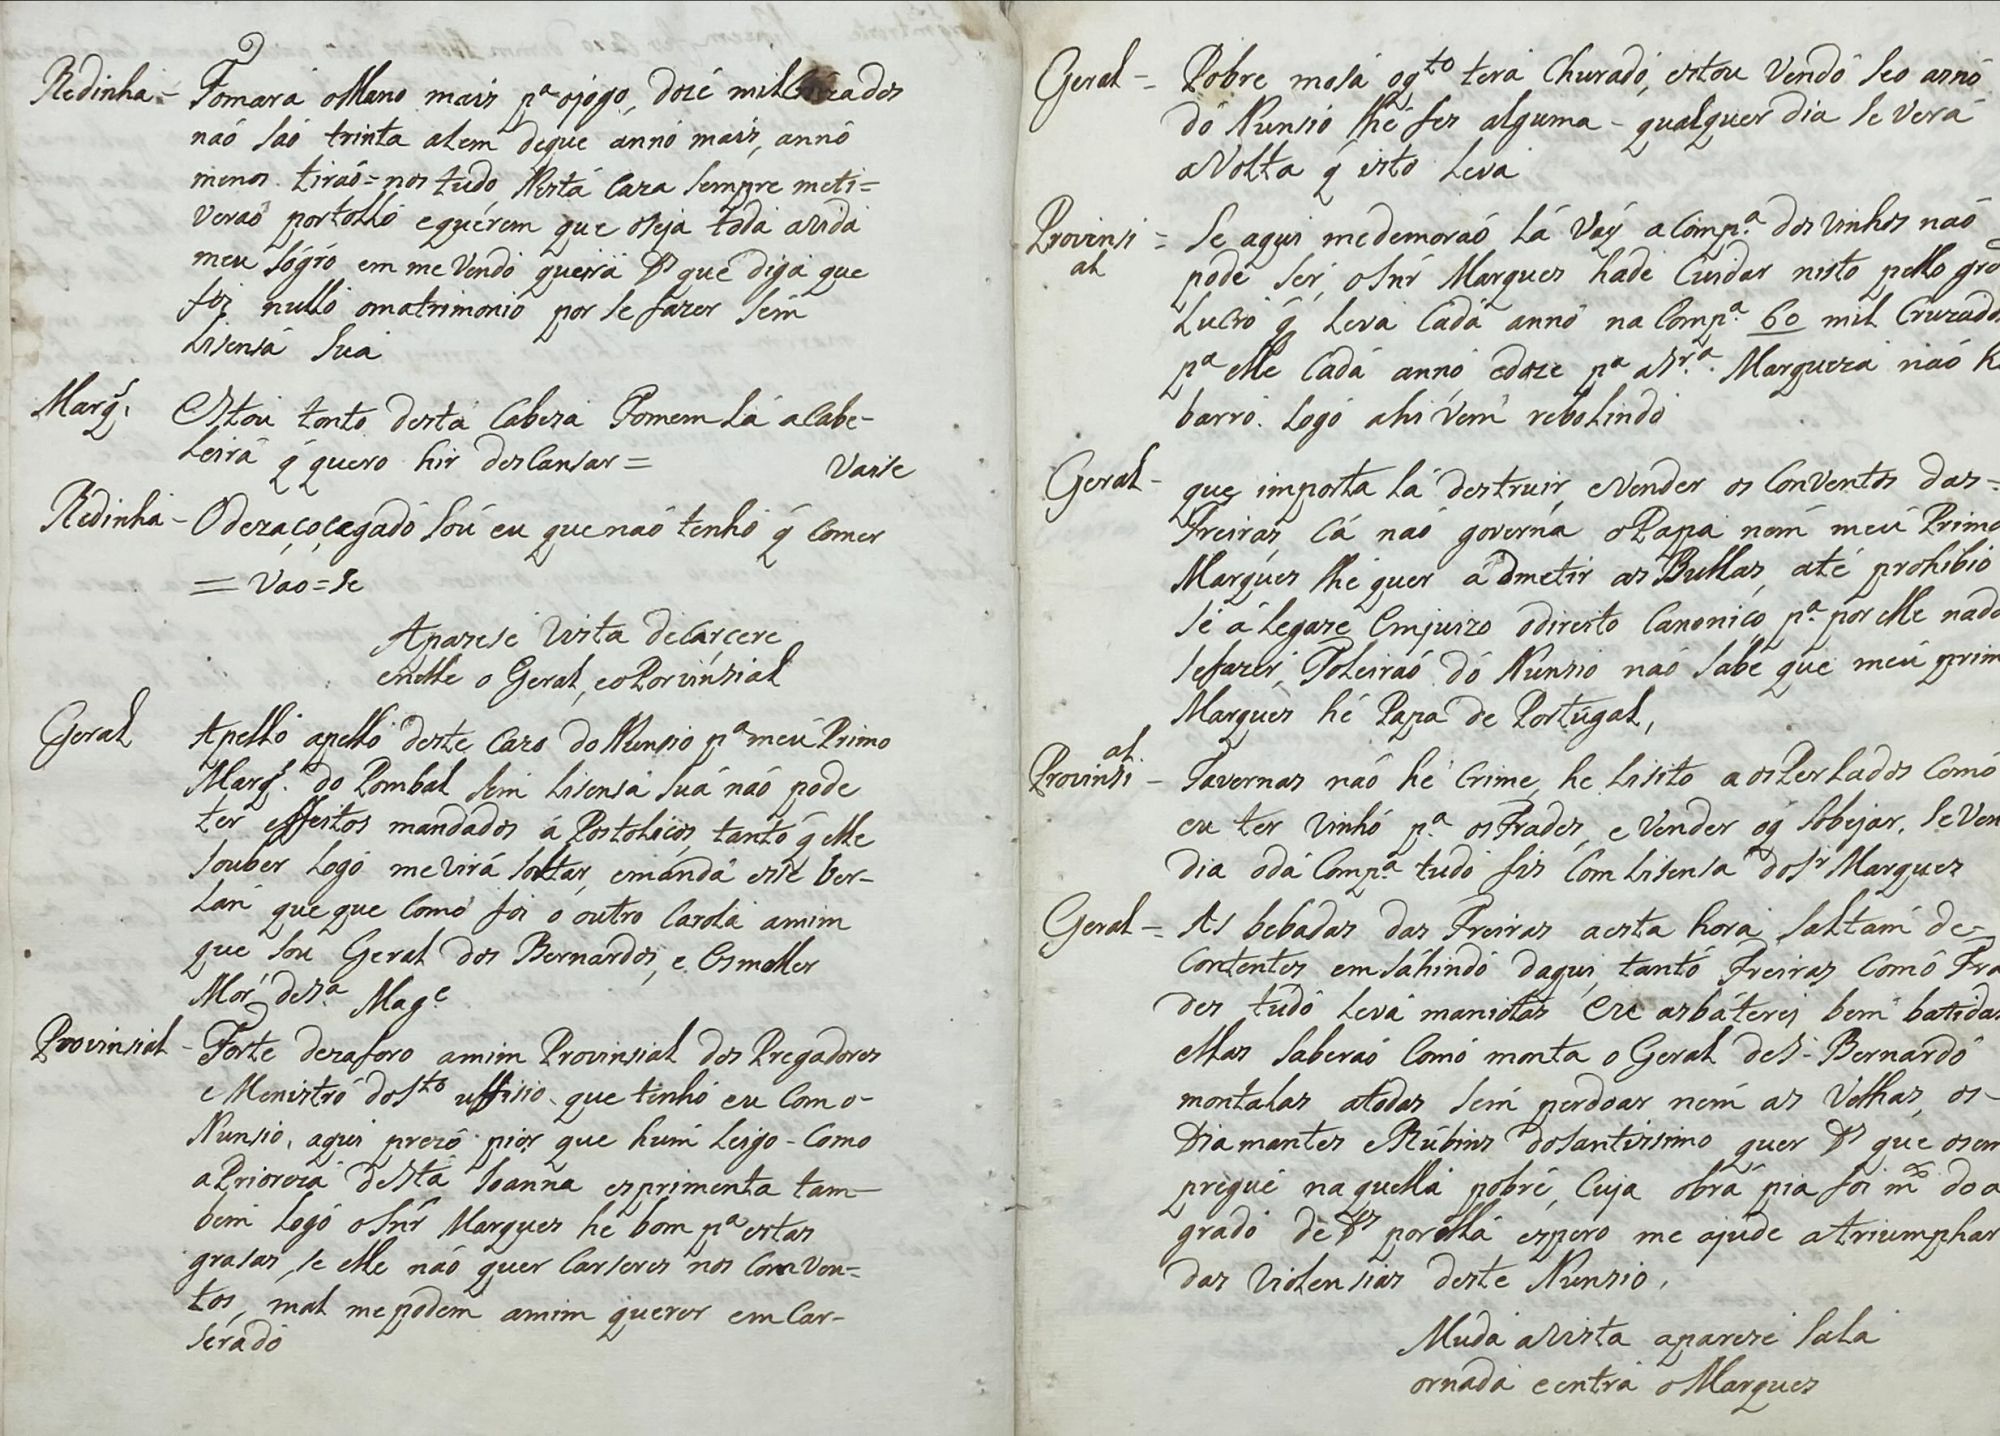 Redinha = Tomara oMano mais pª ojogo, dozé mil Cruzados
naó saó trinta alem deque annó mais, annó
menos tiraó=nos tudo, Nesta Caza sempre meti=
veraó portolló equérem que oseja toda avida
meu lógró em me Vendo queira Ds que diga que
foi nulló omatrimonio por se fazer sém
Lisensa sua
Marqs. Estou tonto desta Cabesa Tomem Lá aCabe-
Leira q̃ quero hir desCansar =
Vaise
Redinha - O dezaçoçegadó soú eu que naó tenhó q̃ Comer
= Vao=se
Aparese Vista decarçere
enelle o Geral, eoPorvinsial
Geral Apelló apelló deste Cazo do Nunsio pª meú Primo
Marqs. do Pombal sem Lisensa suá naó pode
ter effeitos mandados á Postolicos, tantó q̃ elle
souber Logó mevirá soltar, emandá esse ber-
Lan que que Comó foi o outro Carola amim
que sou Geral dos Bernardos, e Esmoller
Mór desª Mage
Provinsial - Forte dezaforo amim Provinsial dos Pregadores
e Menistró doSto uffisio que tenhó eu Com o-
Nunsio, aqui prezó pior que hum Leigo - Como
aPrioreza desta Joanna esprimenta tam-
bem Logó oSnr̃ Marques he bom pª estas
grasas, se elle naó quer Carseres nos Conven=
tos, mal mepodem amim querer em Car-
serado
Geral = Pobre mosa oqto tera Churadó, estou Vendó seo asnó
dó Nunsió lhe fes alguma - qualquer dia se verá
aVolta q̃ isto Leva
Provinsi
al = Se aqui medemoraó Lá Vay aCompª. dos Vinhos naó
podé ser, oSnr̃ Marques hade Cuidar nisto pello gro
Lucro q̃ Leva Cadá annó na Compª. 60 mil Cruzado
pª elle Cadá annó, edoze pª aSrª. Marqueza naó h
barró. Logó ahi vem rebolindó
Geral - que importa Lá destruir, eVender os ConVentos das=
Freiras, Cá naó governa oPapa nem meú Primo
Marques lhe quer ádmetir as Bullas, até prohibio
se á Legase Emjuizo odireito Canonico pª. por elle nada
sefazer, Toleiraó dó Nunsio naó sabe que meú prim
Marques hé Papa de Portugal,
Provinsi
al - Tavernas naó hé Crime, he Lisito aosPerlados Comó
eu ter Vinhó pª. osFrades, e Vender oq̃ sobejar, se Ven
dia odá Compª. tudo fis Com Lisensa doSr Marques
Geral = As bebadas das Freiras aesta hora saltam de=
Contentes em sáhindó daqui, tantó Freiras Comó Fra
des tudó Levá maniotas Ese asbáterei bem batidas
ellas saberaó Comó monta o Geral deS. Bernardó
montalas atodas sem perdoar nem as Velhas, os-
Diamantes eRúbins doSantissimo quer Ds que osem
pregué naquella pobré, Cuja obrá pia foi mto do a
gradó de Ds porellá espero me ajude atriumphar
das Violensias deste Nunsio,
Muda aVista aparese sala
ornada eentra oMarques